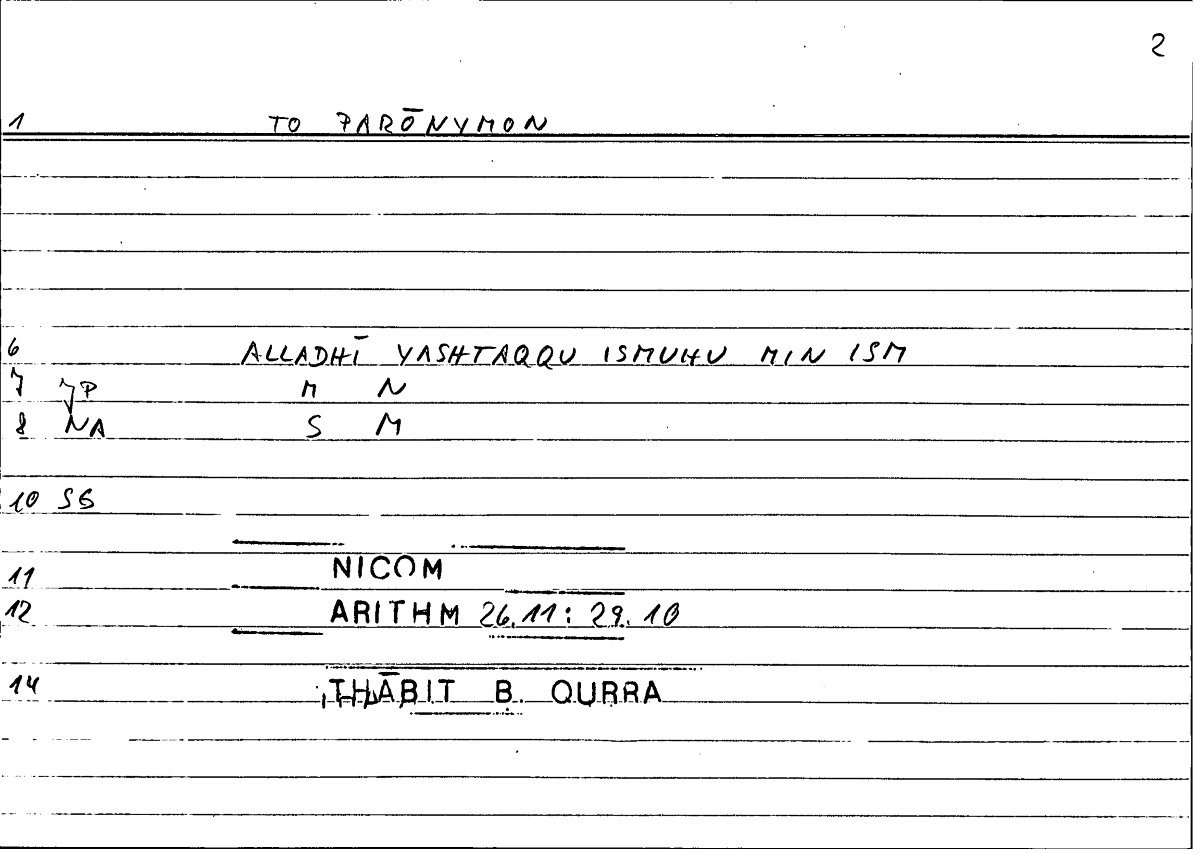 2
1 TO PARŌNYMON
6 ALLADHĪ YASHTAQQU ISMUHU MIN ISM
7 JP M N
8 NA S M
10 SG
11 NICOM
12 ARITHM 26.11: 29.10
14 THĀBIT B. QURRA